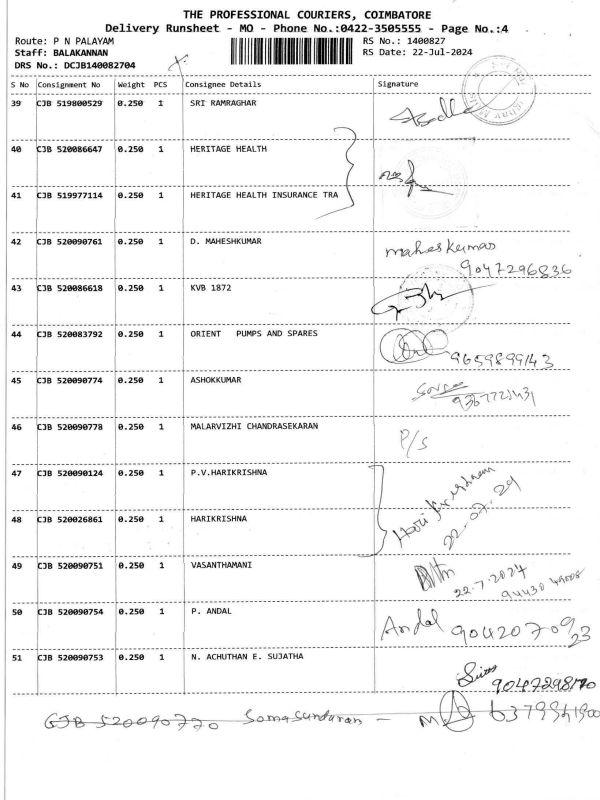 THE PROFESSIONAL COURIERS, COIMBATORE
Delivery Runsheet - MO - Phone No.:0422-3505555 - Page No.:4
Route: P N PALAYAM RS No.: 1400827
Staff: BALAKANNAN RS Date: 22-Jul-2024
DRS No.: DCJB140082704
S No Consignment No Weight PCS Consignee Details Signature
39 CJB 519800529 0.250 1 SRI RAMRAGHAR
40 CJB 520086647 0.250 1 HERITAGE HEALTH
41 CJB 519977114 0.250 1 HERITAGE HEALTH INSURANCE TRA
42 CJB 520090761 0.250 1 D. MAHESHKUMAR maheskumar
9047296836
43 CJB 520086618 0.250 1 KVB 1872
44 CJB 520083792 0.250 1 ORIENT PUMPS AND SPARES
9659899143
45 CJB 520090774 0.250 1 ASHOKKUMAR
46 CJB 520090778 0.250 1 MALARVIZHI CHANDRASEKARAN P/s
47 CJB 520090124 0.250 1 P.V.HARIKRISHNA
48 CJB 520026861 0.250 1 HARIKRISHNA 22.07.24
49 CJB 520090751 0.250 1 VASANTHAMANI
22-7-2024
50 CJB 520090754 0.250 1 P. ANDAL Andal 9042070923
51 CJB 520090753 0.250 1 N. ACHUTHAN E. SUJATHA
CJB 520090770 Somasundaran -